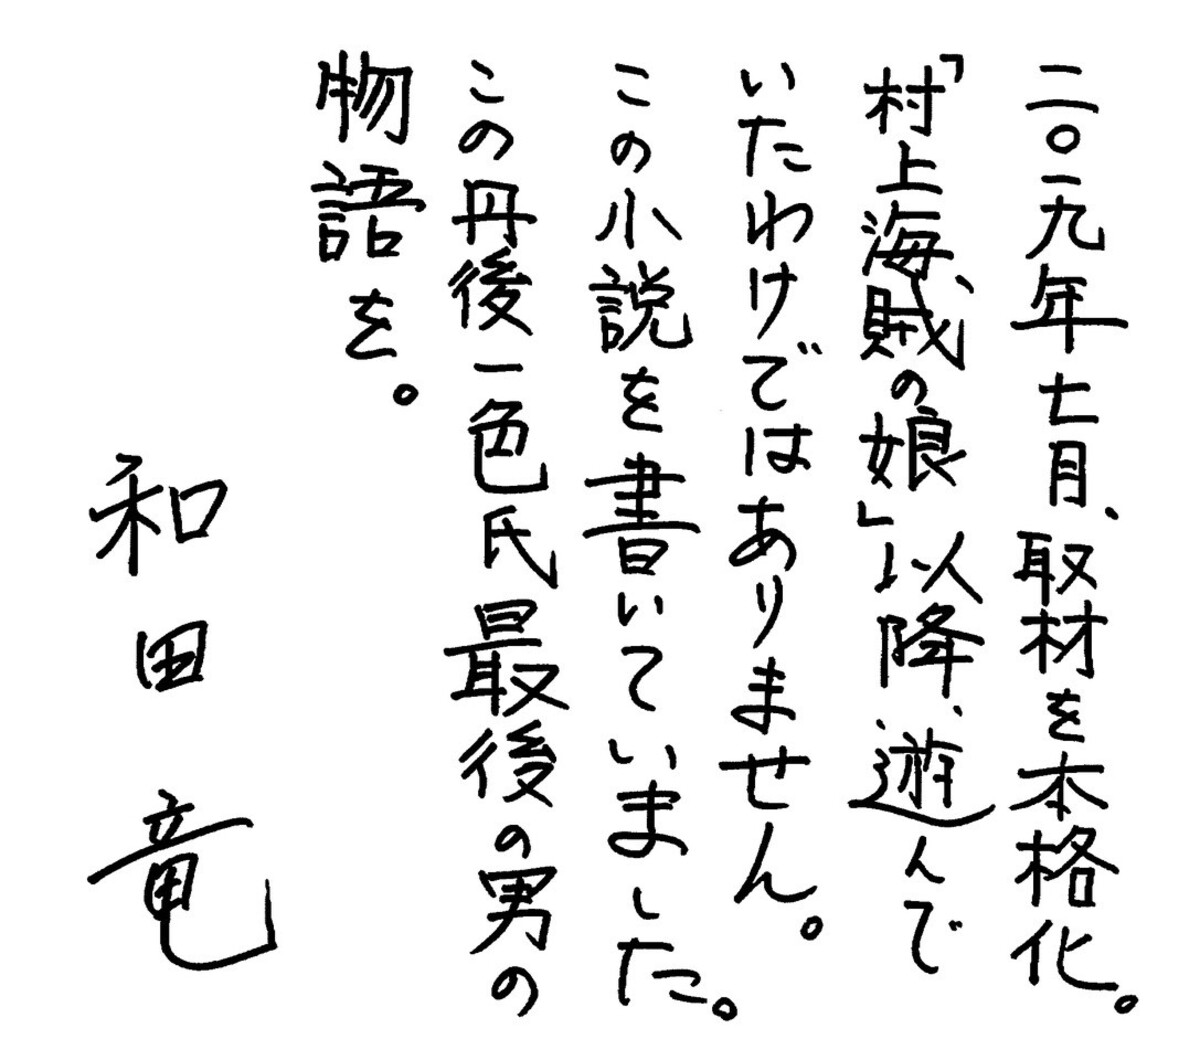 二〇一九年七月、取材を本格化。
「村上海賊の娘」以降、遊んで
いたわけではありません。
この小説を書いていました。
この丹後一色氏最後の男の
物語を。
和田竜